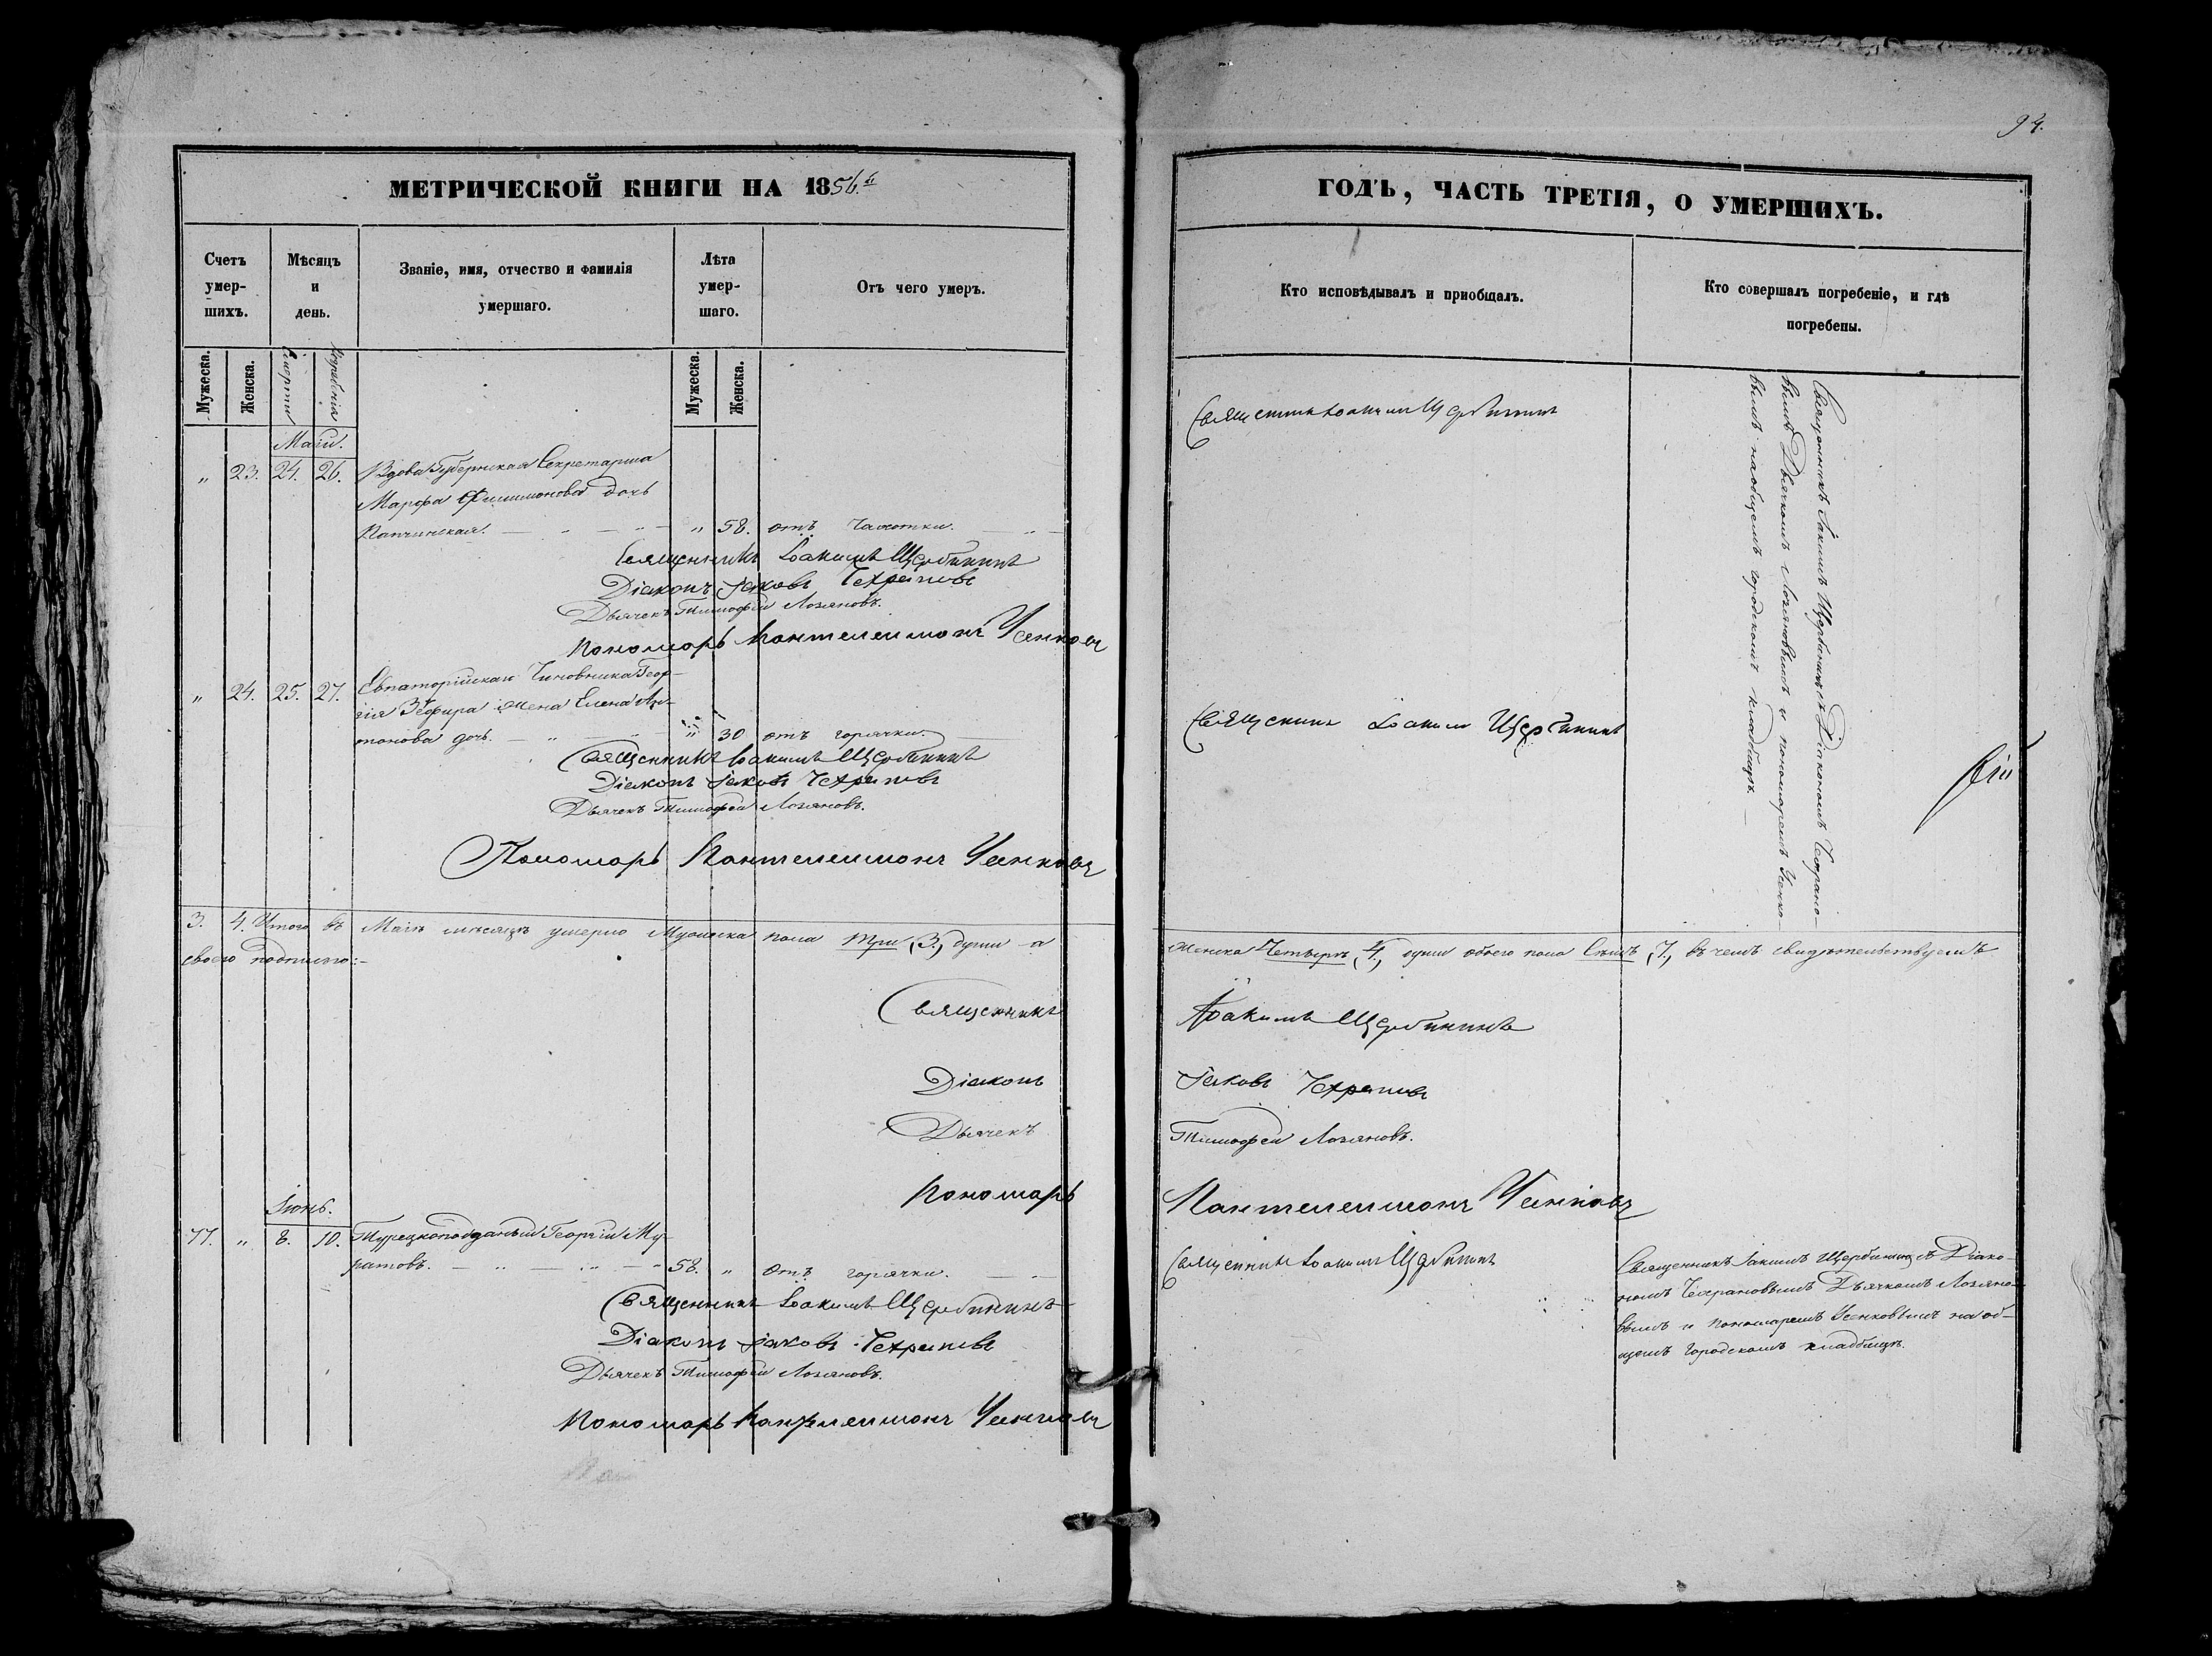 94.
МЕТРИЧЕСКОЙ КНИГИ НА 1856.й
ГОДЪ, ЧАСТЬ ТРЕТІЯ, О УМЕРШИХЪ.
Счетъ умер-шихъ.
Мѣсяцъ и день.
Званіе, имя, отчество и фамилія умершаго.
Лѣта умер-шаго.
Отъ чего умеръ.
Кто исповѣдывалъ и пріобщалъ.
Кто совершалъ погребеніе, и гдѣ погребены.
Мужеска. Женска. Смерти Погребенія Мужеска. Женска.
Маій.
„ 23. 24. 26. Вдова Губернская Секретарша
Марфа Филимонова дочь
„ 58. отъ чахотки.
Священникъ Іоакимъ Щербининъ
Діаконъ Іаковъ
Дьячекъ Тимофей Лозановъ.
Пономарь Пантелеимонъ
Священникъ Іоакимъ Щербининъ
„ 24. 25. 27. Евпаторійскаго Чиновника Геор-
гія Зефира жена Елена Ан-
тонова дочь. „ 30 отъ горячки.
Священникъ Іоакимъ Щербининъ
Діаконъ Іаковъ
Дьячекъ Тимофей Лозановъ.
Пономарь Пантелеимонъ
Священникъ Іоакимъ Щербининъ
Священникъ Іакимъ Щербининъ съ Діакономъ
вымъ Дьячкомъ Лозановымъ и пономаремъ
вымъ на общемъ городскомъ кладбищѣ.
3. 4. Итого въ Маіѣ мѣсяцѣ умерло Мужеска пола три (3.) души а
женска Четыре (4.) души обоего пола Семь (7.) въ чемъ свидѣтельствуемъ
своею подписью:-
Священникъ Іоакимъ Щербининъ
Діаконъ Іаковъ
Дьячекъ Тимофей Лозановъ.
Пономарь Пантелеимонъ
Іюнь.
77. „ 8. 10. Турецкоподданый Георгій Му-
ратовъ. 58. „ Отъ горячки.
Священникъ Іоакимъ Щербининъ
Діаконъ Іаковъ
Дьячекъ Тимофей Лозановъ.
Пономарь Пантелеимонъ
Священникъ Іоакимъ Щербининъ
Священникъ Іакимъ Щербининъ съ Діако-
номъ Дьячкомъ Лозано-
вымъ и пономаремъ на об-
щемъ Городскомъ кладбищѣ.